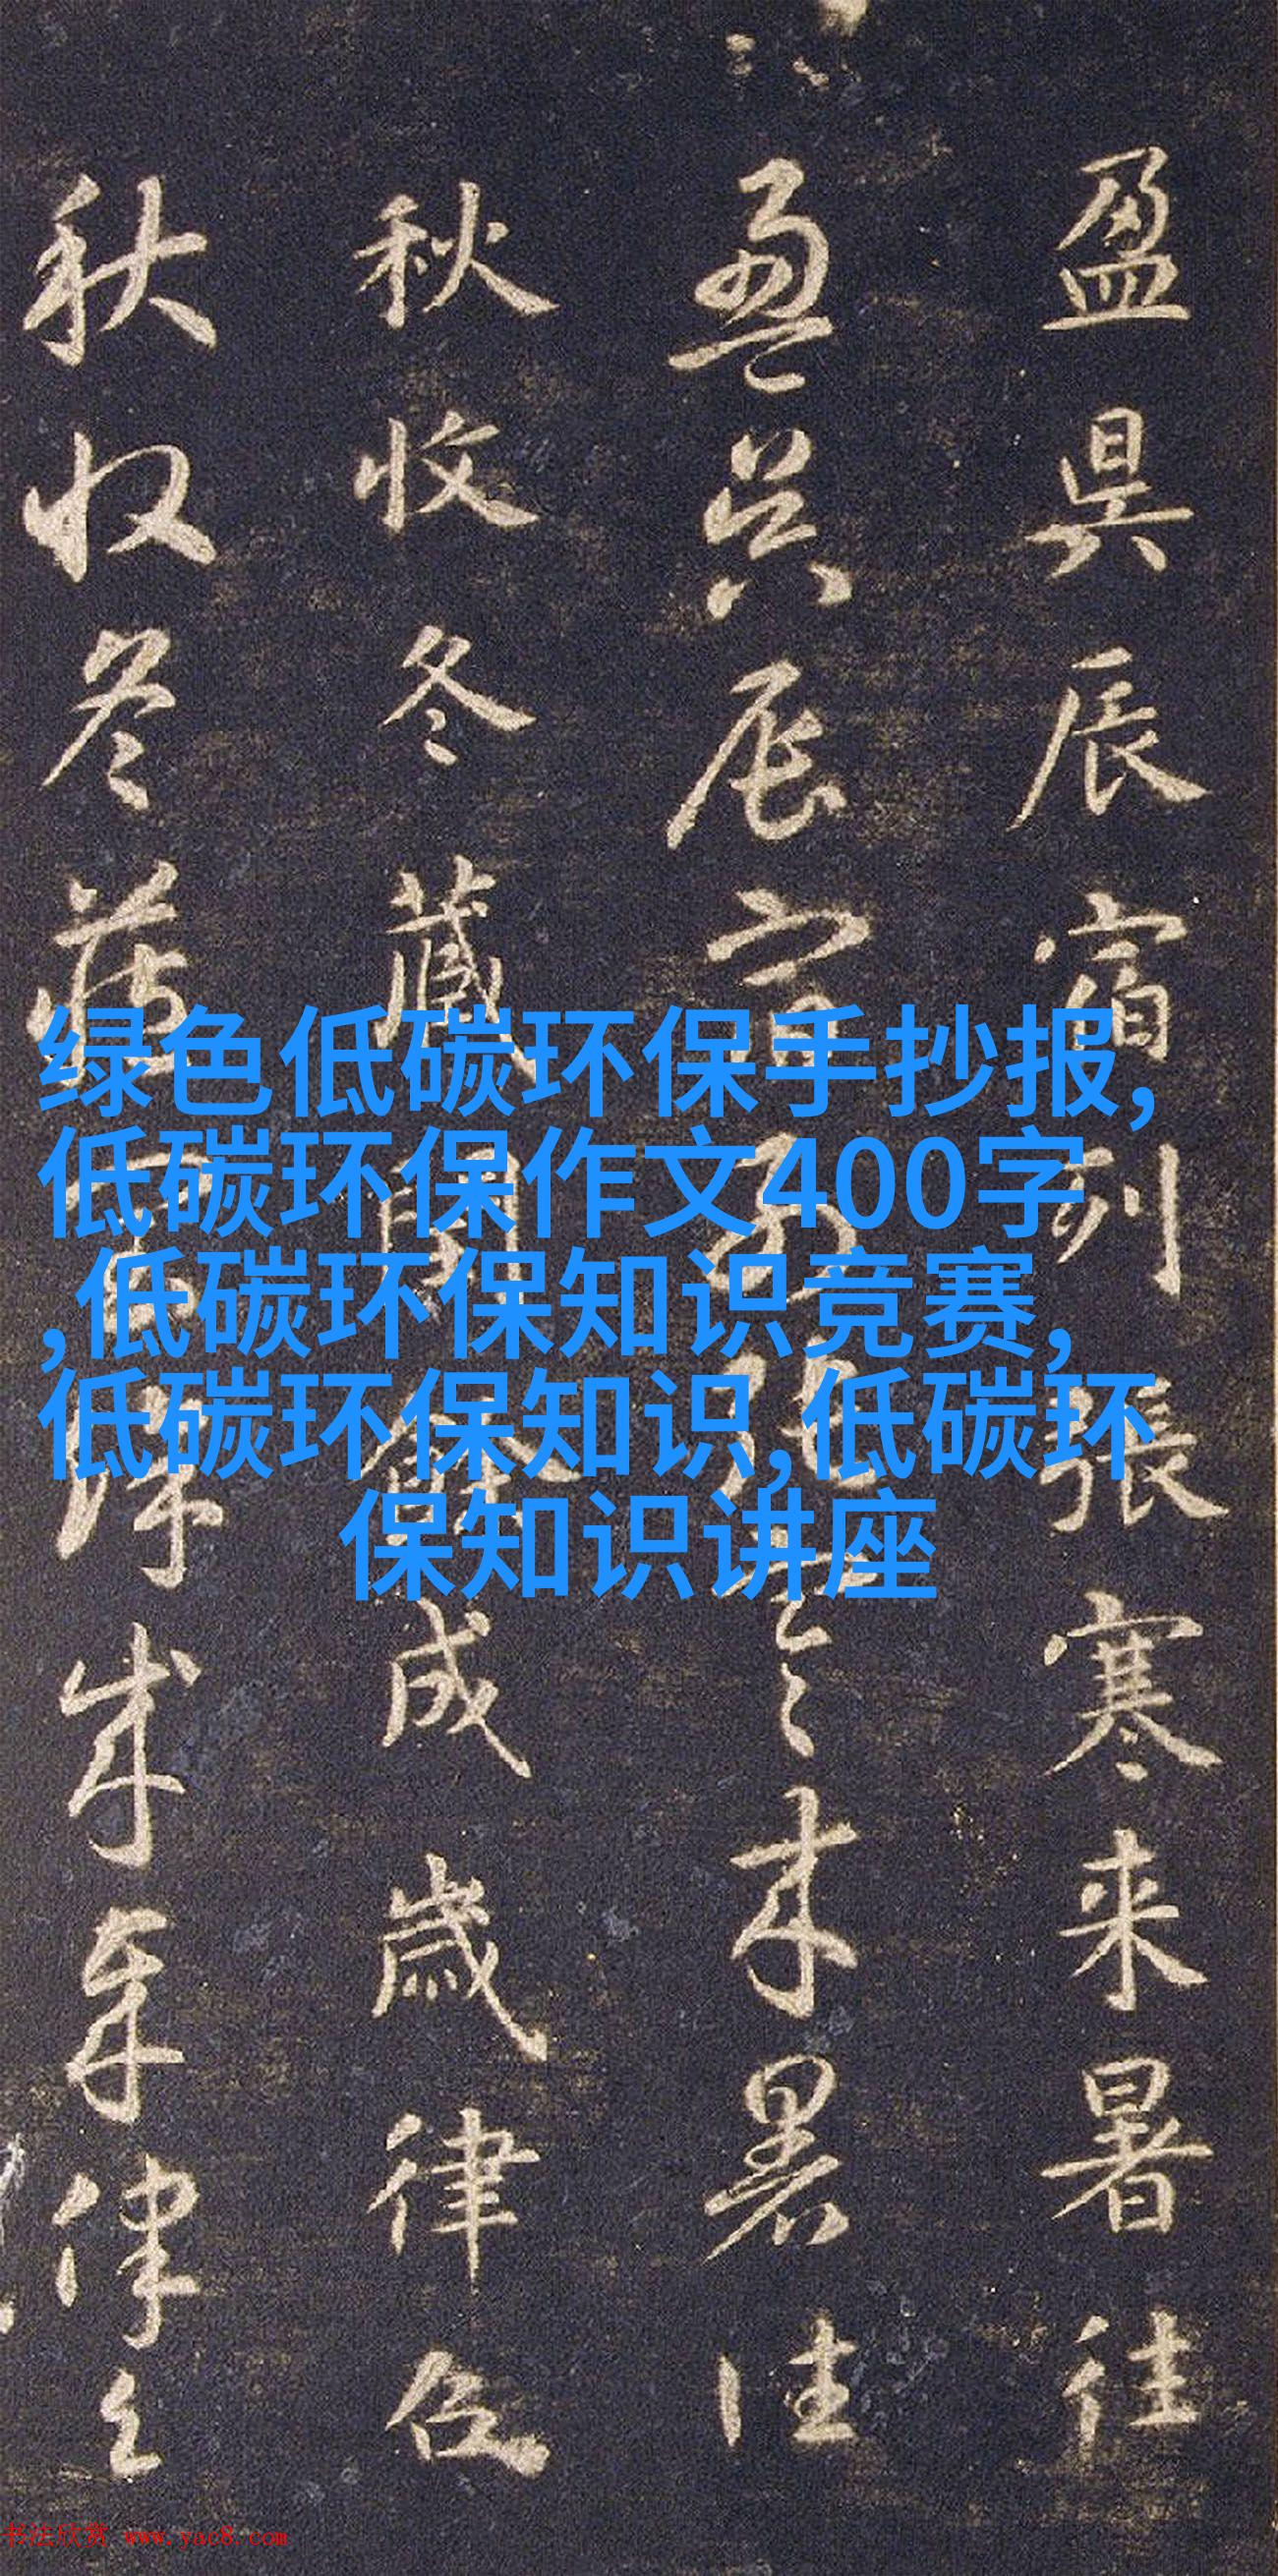 盈昃辰宿列張寒来暑往
盈昃辰宿列張寒来暑往
秋收冬藏閏餘成歲律吕
秋收冬藏
成歲律吕
绿色低碳环保手抄报,
低碳环保作文400字
,低碳环保知识竞赛,
低碳环保知识,低碳环
保知识讲座
书法欣赏 www.yac8.com